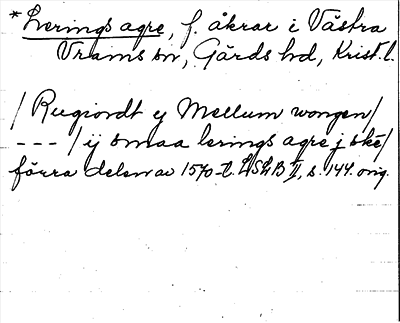 *Lerings agre, f. åkrar i Västra
Vrams sn, Gärds hd, Krist. l.
/ Rugiordt ej Mellum wongen/
--- / ij smaa lerings agre j ske/
förra delen av 1570-t. LSLB II, s. 144. orig.